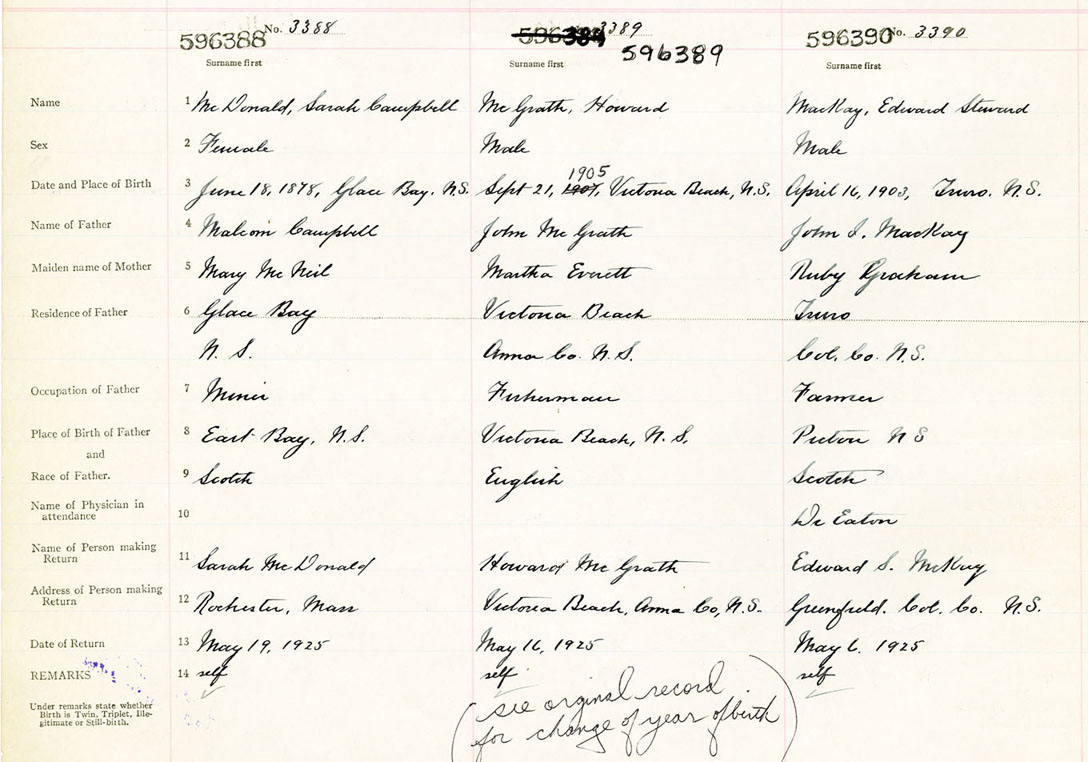 No. 3388 3389 No. 3390
596388 596389 596389 596390
Surname first Surname first Surname first
Name 1 McDonald, Sarah Campbell McGrath, Howard MacKay, Edward Steward
Sex 2 Female Male Male
1905
Date and Place of Birth 3 June 18, 1878, Glace Bay. N.S. Sept 21, 1907, Victoria Beach, N.S. April 16, 1903, Truro. N.S.
Name of Father 4 Malcom Campbell John McGrath John I. MacKay
Maiden name of Mother 5 Mary McNeil Martha Everett Ruby Graham
Residence of Father 6 Glace Bay Victoria Beach Truro
N. S. Anna Co. N. S. Col. Co. N.S.
Occupation of Father 7 Miner Fisherman Farmer
Place of Birth of Father 8 East Bay, N.S. Victoria Beach, N. S. Pictou N S
and
Race of Father. 9 Scotch English Scotch
Name of Physician in
attendance 10 Dr Eaton
Name of Person making
Return 11 Sarah McDonald Howard McGrath Edward S. McKay
Address of Person making
Return 12 Rochester, Mass Victoria Beach, Anna Co, N.S. Greenfield. Col. Co. N.S.
Date of Return 13 May 19, 1925 May 16, 1925 May 6. 1925
REMARKS 14 self self self
Under remarks state whether
Birth is Twin, Triplet, Ille-
gitimate or Still-birth.
(see orginal record
for change of year of birth)